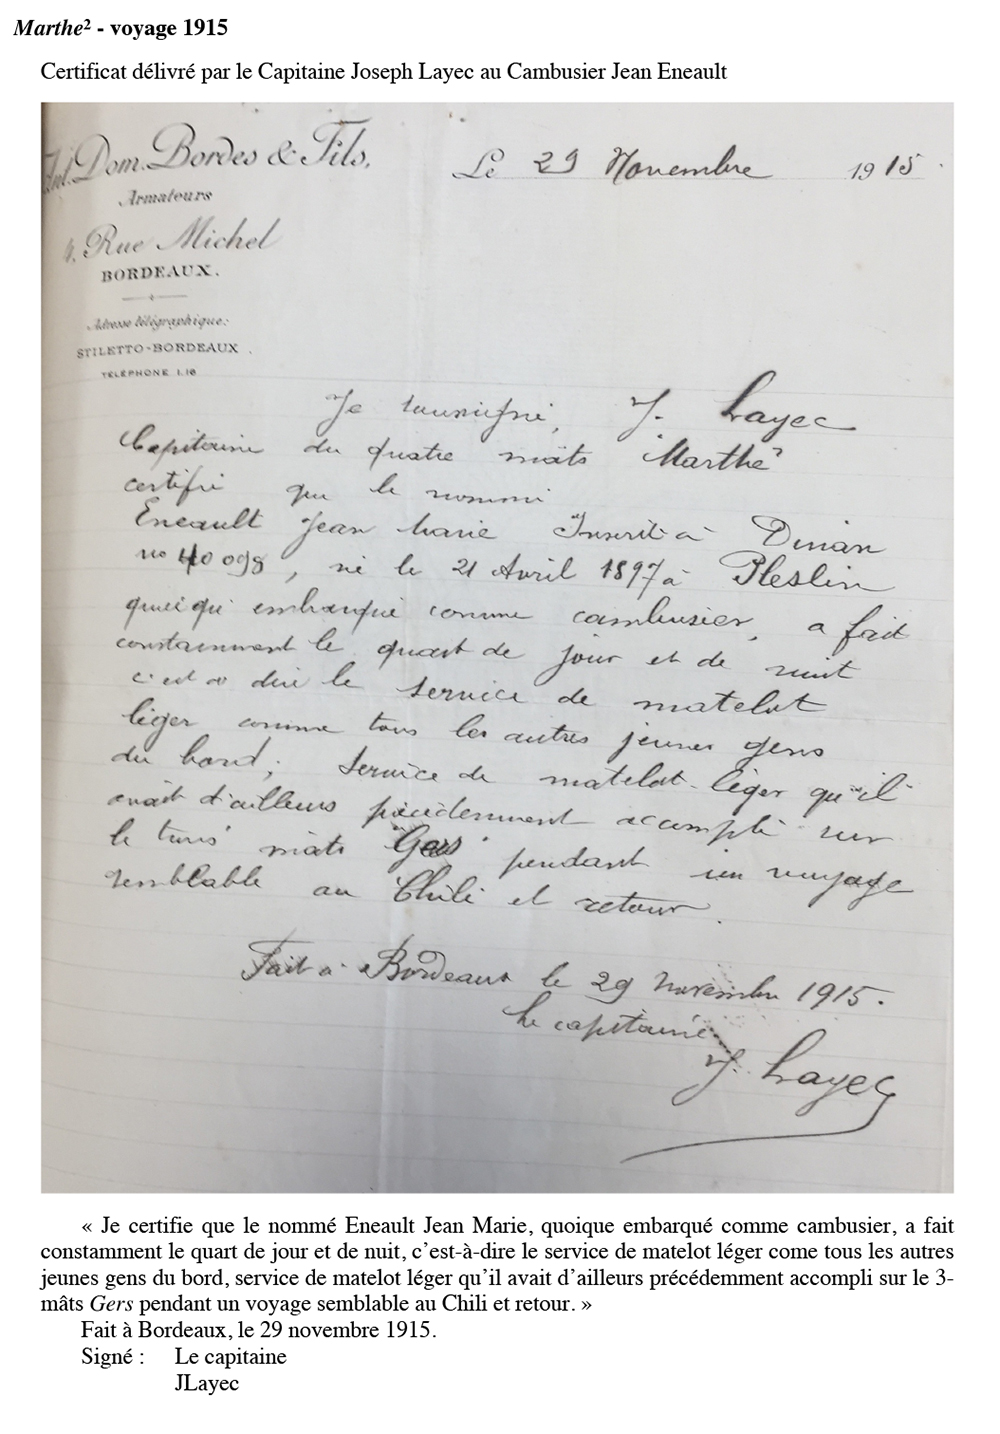 Marthe² - voyage 1915
Certificat délivré par le Capitaine Joseph Layec au Cambusier Jean Eneault
Ant. Dom. Bordes & Fils,
Armateurs
4, Rue Michel
BORDEAUX.
Adresse télégraphique:
STILETTO-BORDEAUX
TÉLÉPHONE 1.18
Le 29 Novembre 1915
Je soussigné, J. Layec
Capitaine du quatre mâts "Marthe"
certifie que le nommé
Eneault Jean Marie Inscrit à Dinan
no 40098, né le 21 Avril 1897 à Pleslin
quoique embarqué comme cambusier, a fait
constamment le quart de jour et de nuit
c'est à dire le service de matelot
léger comme tous les autres jeunes gens
du bord; service de matelot-léger qu'il
avait d'ailleurs précédemment accompli sur
le trois mâts "Gers" pendant un voyage
semblable au Chili et retour.
Fait à Bordeaux le 29 novembre 1915.
Le capitaine
J. Layec
« Je certifie que le nommé Eneault Jean Marie, quoique embarqué comme cambusier, a fait
constamment le quart de jour et de nuit, c'est-à-dire le service de matelot léger come tous les autres
jeunes gens du bord, service de matelot léger qu'il avait d'ailleurs précédemment accompli sur le 3-
mâts Gers pendant un voyage semblable au Chili et retour. »
Fait à Bordeaux, le 29 novembre 1915.
Signé : Le capitaine
JLayec